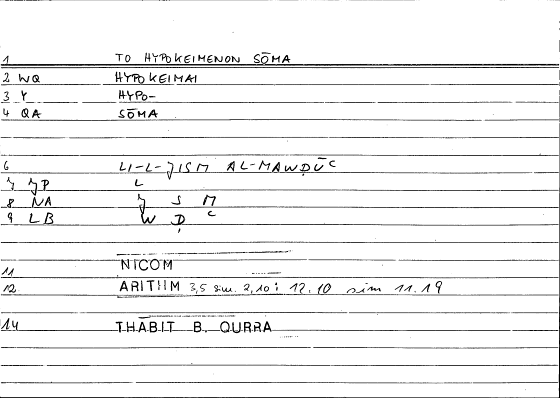 1 TO HYPOKEIMENON SŌMA
2 WQ HYPOKEIMAI
3 Y HYPO-
4 QA SŌMA
6 LI-L-JISM AL-MAWḌŪʿ
7 JP L
8 NA J S M
9 LB W Ḍ ʿ
11 NICOM
12 ARITHM 3,5 sim. 2,10 : 12.10 sim 11.19
14 THĀBIT B. QURRA